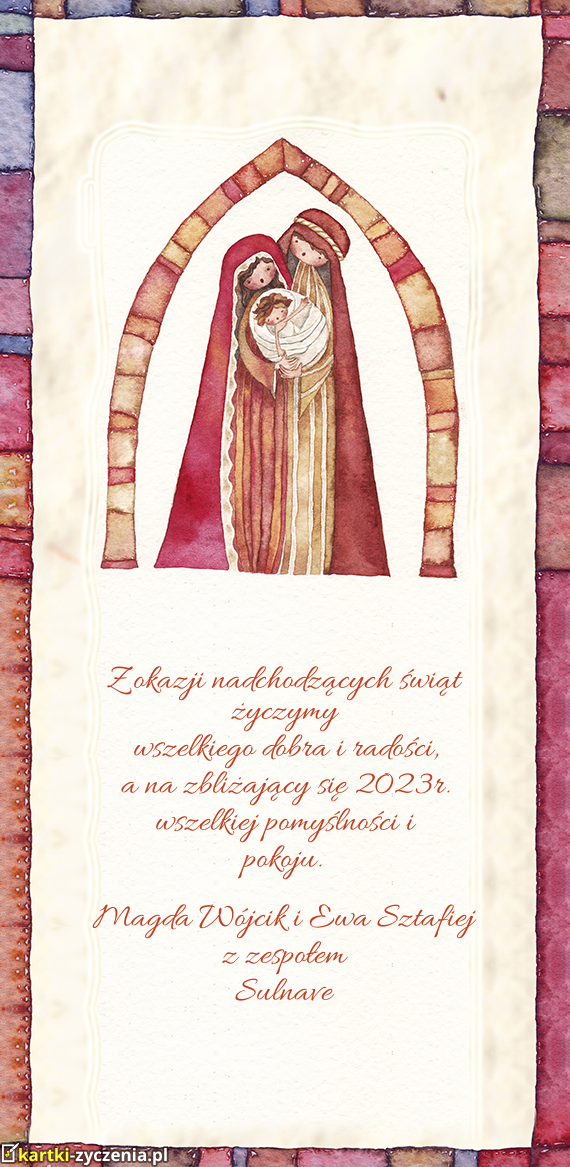 Z okazji nadchodzących świąt
życzymy
wszelkiego dobra i radości,
a na zbliżający się 2023r.
wszelkiej pomyślności i
pokoju.
Magda Wójcik i Ewa Sztafiej
z zespołem
Sulnave
kartki-zyczenia.pl